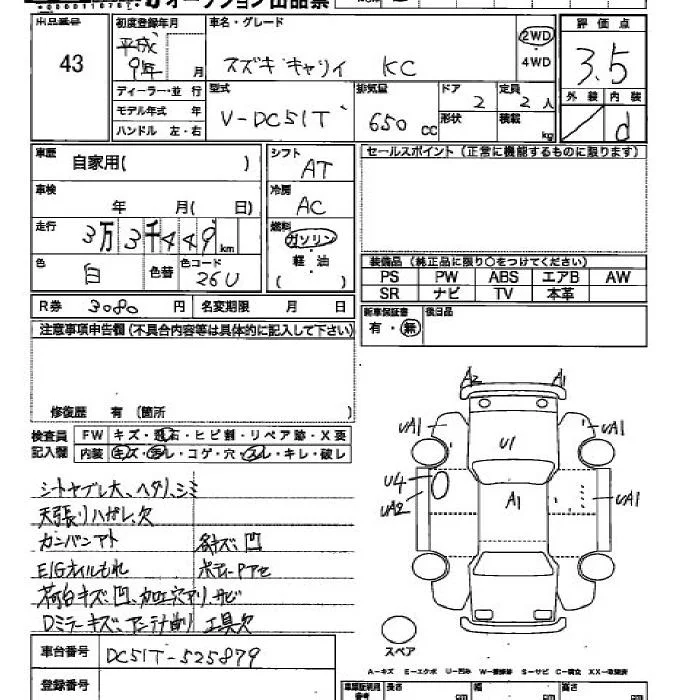 オークション出品票
出品番号 初度登録年月 車名・グレード 評価点
43 平成9年 月 スズキ キャリイ KC 2WD・4WD 3.5
ディーラー・並行 型式 排気量 ドア 定員 外装 内装
モデル年式 年 V-DC51T 650 CC 2 2人 d
ハンドル 左・右 形状 積載 kg
車歴 自家用( ) シフト AT セールスポイント (正常に機能するものに限ります)
車検 年 月( 日) 冷房 AC
走行 3万3千449km 燃料 ガソリン
色 白 色替 色コード 26U 軽・油 ( )
装備品 (純正品に限り○をつけてください)
PS PW ABS エアB AW
SR ナビ TV 本革
R券 3080円 名変期限 月 日
新車保証書 有・無 後日品
注意事項申告欄 (不具合内容等は具体的に記入して下さい)
修復歴 有 (箇所 )
検査員 FW キズ・飛石・ヒビ割・リペア跡・X要
記入欄 内装 キズ・汚レ・コゲ・穴・スレ・キレ・破レ
シートヤブレ大、ヘタリ、シミ
天張リハガレ、欠
カンバンアト 各キズ、凹
E/Gオイルもれ ボディーPアセ
荷台キズ、凹、加工穴アリ、サビ
Dミラーキズ、アンテナ曲り 工具欠
A2 A1
UA1 U1 UA1
U4 UA2 A1 UA1
スペア
A-キズ E-エクボ U-凹み W-補修跡 S-サビ C-腐食 XX-交換済
車台番号 DC51T-525879
登録番号
長さ 幅 高さ